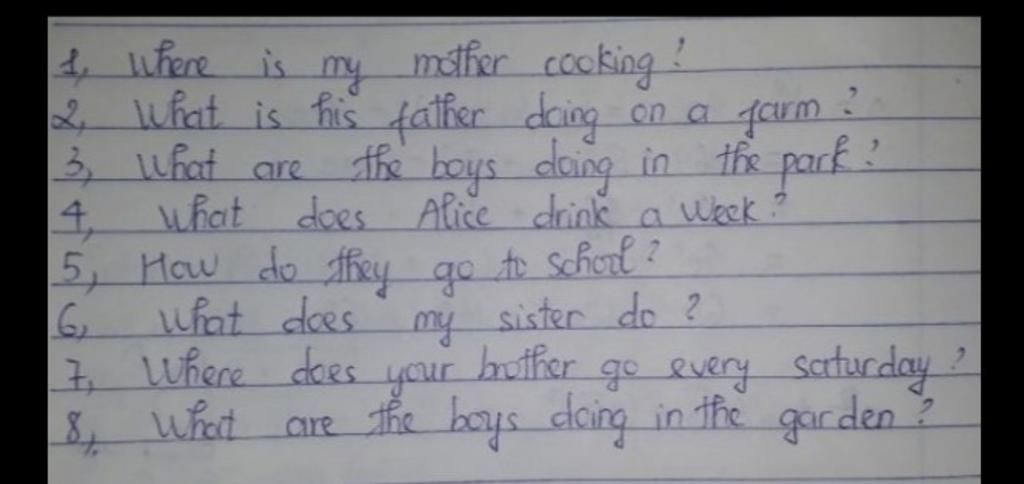 1, Where is my mother cooking?
2, What is his father doing on a farm?
3, What are the boys doing in the park?
4, What does Alice drink a week?
5, How do they go to school?
6, What does my sister do?
7, Where does your brother go every saturday?
8, What are the boys doing in the garden?